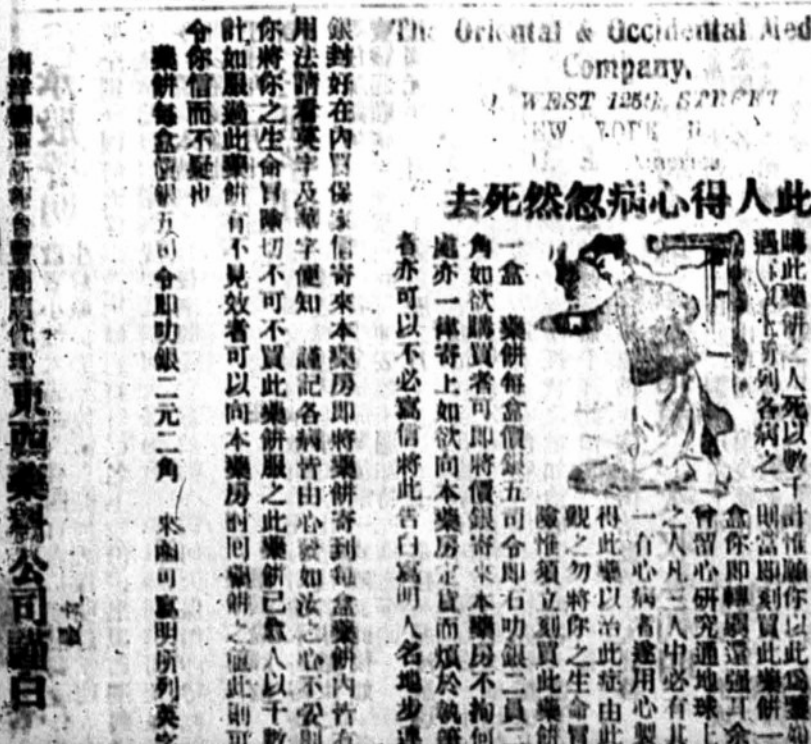 The Oriental & Occidental Med
Company,
WEST 125th STREET
NEW YORK
America
此人得心病忽然死去
購此藥餅之人死以數千計惟願你以此為鑒如
遇 上所列各病之一則當即刻買此藥餅一
盒你即轉弱還強耳余
曾留心研究通地球上
之人凡三人中必有其
一有心病者遂用心製
得此藥以治此症由此
觀之勿將你之生命冒
險惟須立刻買此藥餅
一盒 藥餅每盒價銀五司令即石叻銀二員二
角如欲購買者可即將價銀寄來本藥房不拘何
處亦一律寄上如欲向本藥房定買而煩於執筆
者亦可以不必寫信將此告白寫明人名地步連
銀封好在內買保家信寄來本藥房即將藥餅寄到每盒藥餅內皆有
用法請看英字及華字便知 謹記各病皆由心發如汝之心不妥則
你將你之生命冒險切不可不買此藥餅服之此藥餅已救人以千數
計如服過此藥餅有不見效者可以向本藥房討回藥餅之值此則可
令你信而不疑也
藥餅每盒價銀五司令即叻銀二元二角 來函可寫明所列英字
東西藥料公司謹白